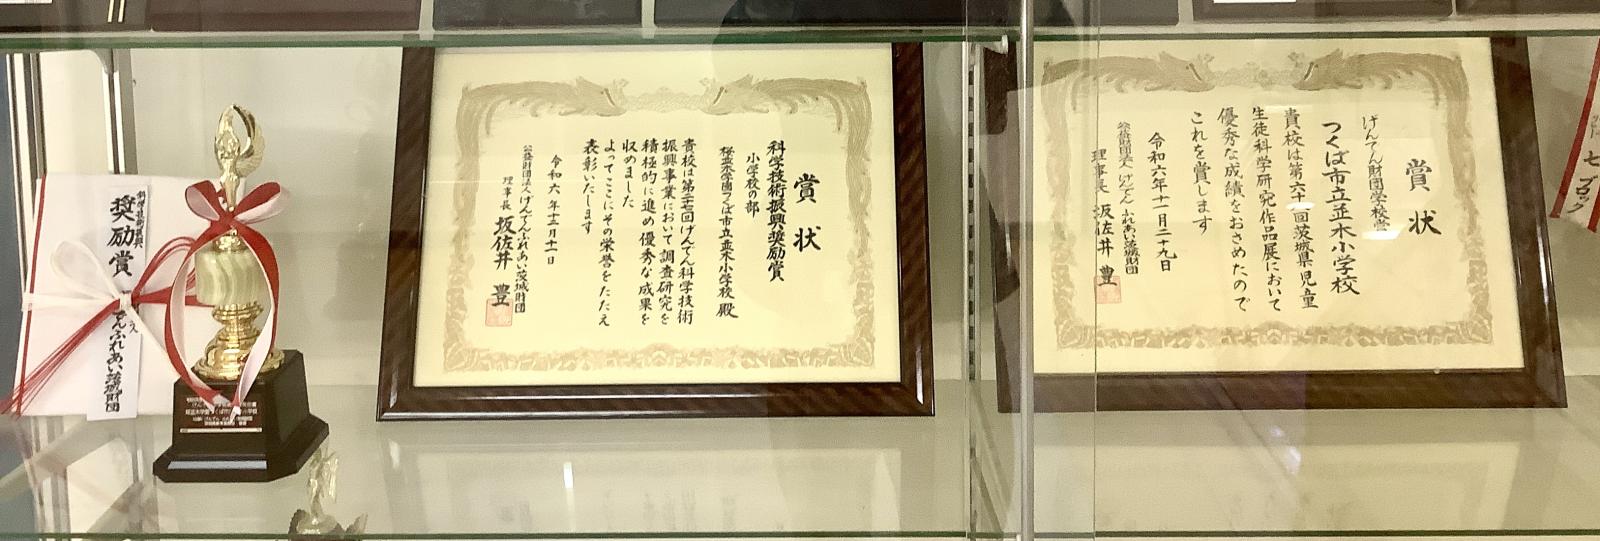 奨励賞
でんふれあい茨城財団
賞状
科学技術振興奨励賞
小学校の部
桜並木学園つくば市立並木小学校殿
貴校は第二七回げんでん科学技術
振興事業において調査研究を
積極的に進め優秀な成果を
収めました
よってここにその栄誉をたたえ
表彰いたします
令和六年十二月十一日
公益財団法人げんでんふれあい茨城財団
理事長 坂佐井 豊
賞状
げんでん財団学校賞
つくば市立並木小学校
貴校は第六十一回茨城県児童
生徒科学研究作品展において
優秀な成績をおさめたので
これを賞します
令和六年十一月二十九日
公益財団法人げんでんふれあい茨城財団
理事長 坂佐井 豊
七ブロック